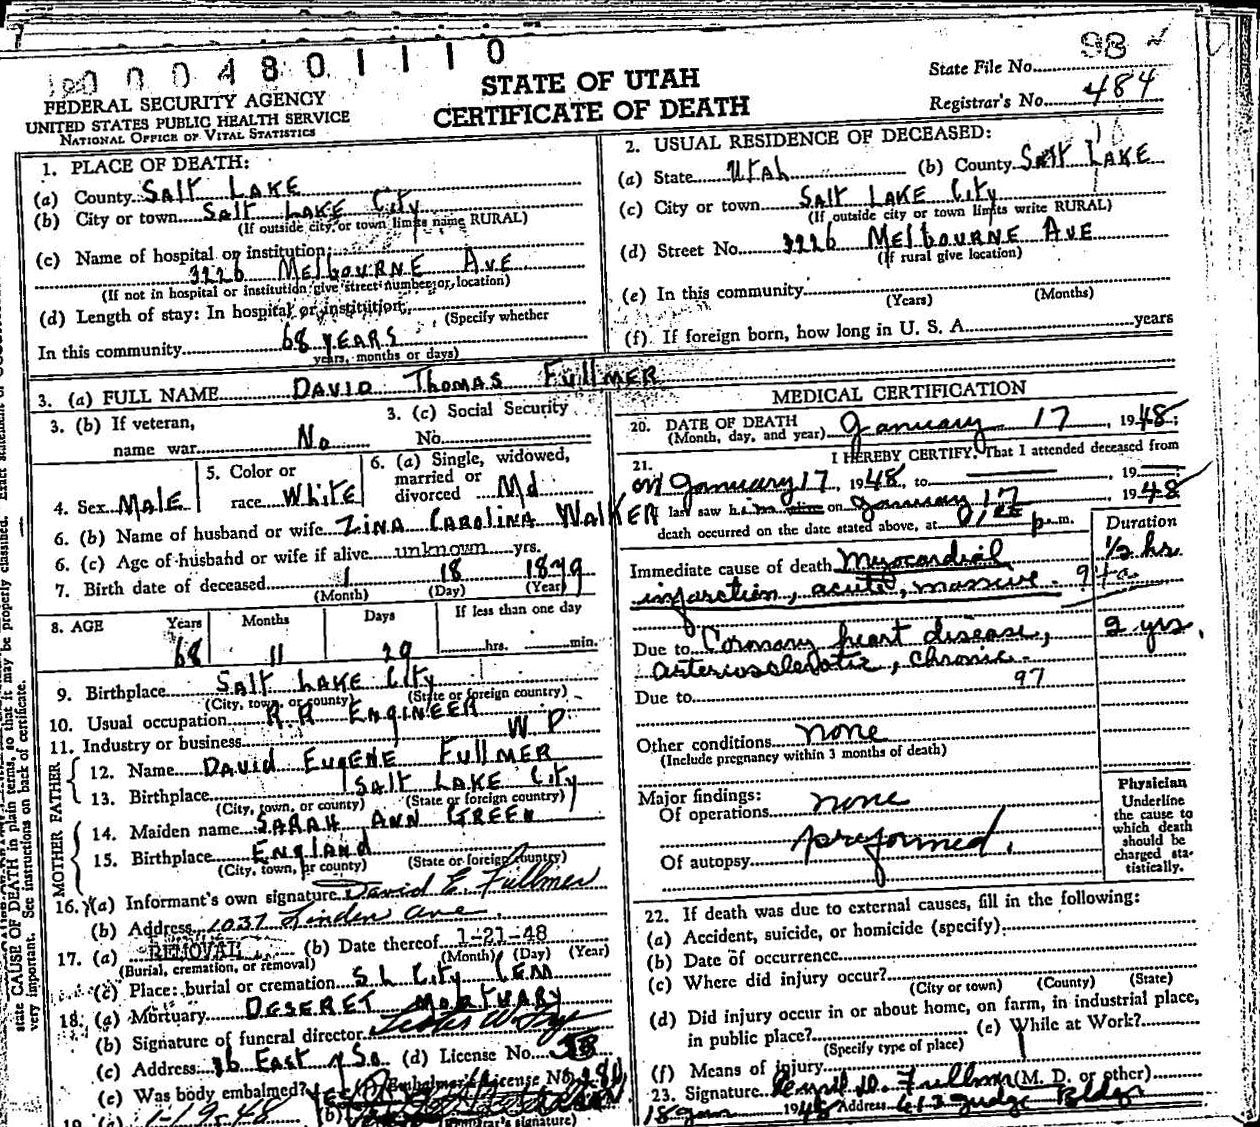 0 0 0 4 8 0 1 1 1 0
98
STATE OF UTAH
CERTIFICATE OF DEATH
FEDERAL SECURITY AGENCY
UNITED STATES PUBLIC HEALTH SERVICE
NATIONAL OFFICE OF VITAL STATISTICS
State File No.
Registrar's No. 484
1. PLACE OF DEATH:
(a) County SALT LAKE
(b) City or town SALT LAKE City
(If outside city or town limits name RURAL)
(c) Name of hospital or institution:
3226 MELBOURNE AVE
(If not in hospital or institution give street number or location)
(d) Length of stay: In hospital or institution
(Specify whether
In this community 68 YEARS
years, months or days)
2. USUAL RESIDENCE OF DECEASED:
(a) State UTAH (b) County SALT LAKE
(c) City or town SALT LAKE City
(If outside city or town limits write RURAL)
(d) Street No. 3226 MELBOURNE AVE
(If rural give location)
(e) In this community
(Years) (Months)
(f) If foreign born, how long in U. S. A. years
3. (a) FULL NAME DAVID THOMAS FULLMER
3. (b) If veteran,
name war No
3. (c) Social Security
No.
4. Sex MALE
5. Color or
race White
6. (a) Single, widowed,
married or
divorced Md
6. (b) Name of husband or wife ZINA CAROLINA WALKER
6. (c) Age of husband or wife if alive unknown yrs.
7. Birth date of deceased 1 18 1879
(Month) (Day) (Year)
8. AGE Years Months Days If less than one day
68 11 29 hrs. min.
9. Birthplace SALT LAKE City
(City, town, or county) (State or foreign country)
10. Usual occupation R.R ENGINEER
11. Industry or business W P
FATHER
12. Name DAVID EUGENE FULLMER
13. Birthplace SALT LAKE City
(City, town, or county) (State or foreign country)
MOTHER
14. Maiden name SARAH ANN GREEN
15. Birthplace ENGLAND
(City, town, or county) (State or foreign country)
16. (a) Informant's own signature David E. Fullmer
(b) Address 1037 Linden Ave
17. (a) REMOVAL (b) Date thereof 1-21-48
(Burial, cremation, or removal) (Month) (Day) (Year)
(c) Place: burial or cremation S L City CEM
18. (a) Mortuary DESERET MORTUARY
(b) Signature of funeral director
(c) Address 36 East 7 So. (d) License No.
(e) Was body embalmed? Yes Embalmer's License No.
19. (a) 1-19-48 (b)
MEDICAL CERTIFICATION
20. DATE OF DEATH
(Month, day, and year) January 17, 1948;
21. I HEREBY CERTIFY, That I attended deceased from
on January 17, 1948, to 19
last saw him alive on January 17 1948
death occurred on the date stated above, at p.m.
Duration
Immediate cause of death Myocardial 1/2 hr
infarction, acute, massive. 94a
Due to Coronary heart disease, 2 yrs.
arteriosclerotic, chronic.
97
Due to
Other conditions none
(Include pregnancy within 3 months of death)
Major findings:
Of operations none
Of autopsy preformed.
Physician
Underline
the cause to
which death
should be
charged sta-
tistically.
22. If death was due to external causes, fill in the following:
(a) Accident, suicide, or homicide (specify)
(b) Date of occurrence
(c) Where did injury occur?
(City or town) (County) (State)
(d) Did injury occur in or about home, on farm, in industrial place,
in public place? (e) While at Work?
(Specify type of place)
(f) Means of injury
23. Signature Fullmer (M. D. or other)
18 Jan 1948 Address 613 Judge Bldg.
state CAUSE OF DEATH in plain terms, so that it may be properly classified. Exact statement of
very important. See instructions on back of certificate.